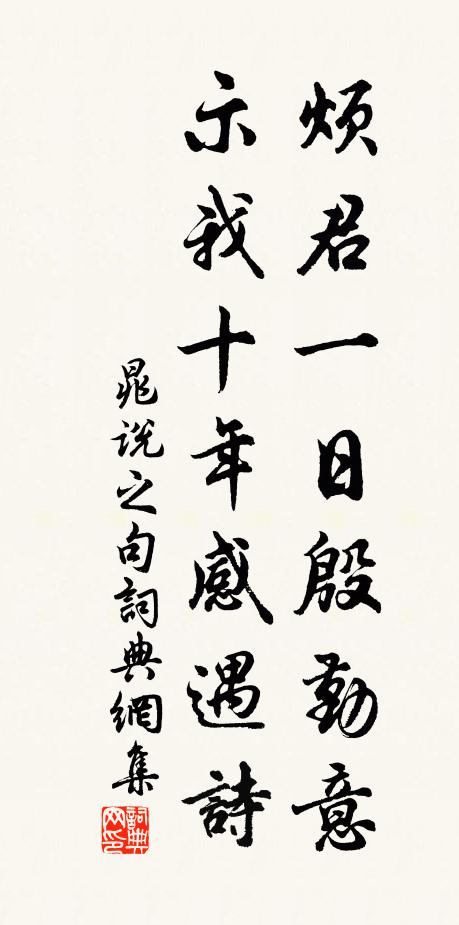 煩君一日殷勤意
示我十年感遇詩
晁說之句詞典網集
詞典網印